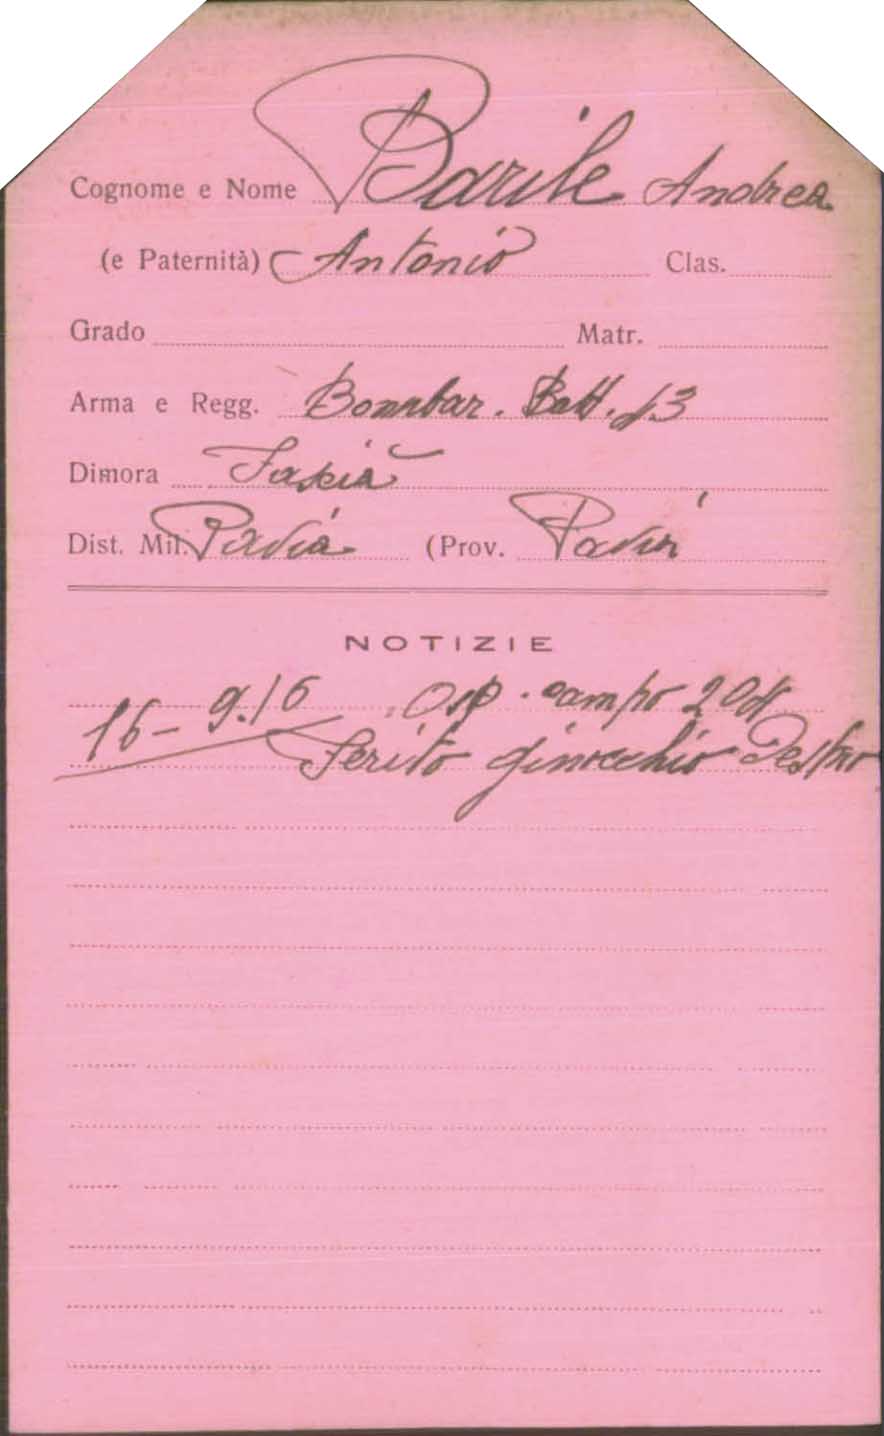 Cognome e Nome Barile Andrea
(e Paternità) Antonio Clas.
Grado Matr.
Arma e Regg. Bombar. Batt. 53
Dimora
Dist. Mil. Pavia (Prov. Pavia
NOTIZIE
16-9.16 Osp. campo
ferito ginocchio Destro